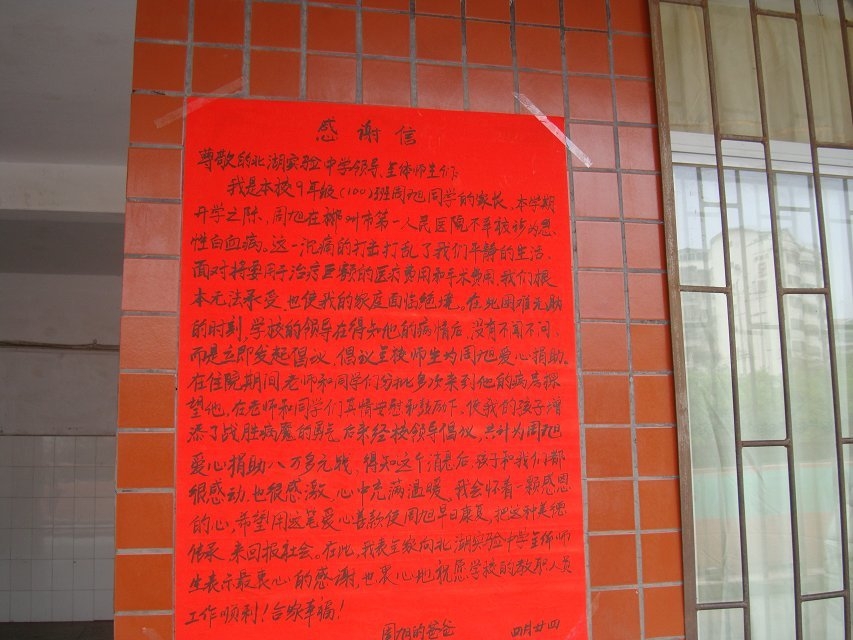 感谢信
尊敬的北湖实验中学领导、全体师生们:
我是本校9年级(100)班周旭同学的家长、本学期
开学之际、周旭在郴州市第一人民医院不幸被诊为急
性白血病。这一沉痛的打击打乱了我们平静的生活、
面对将要用于治疗巨额的医疗费用和手术费用、我们根
本无法承受、也使我的家庭面临绝境。在此困难无助
的时刻,学校的领导在得知他的病情后,没有不闻不问、
而是立即发起倡议,倡议全校师生为周旭爱心捐助。
在住院期间老师和同学们分批多次来到他的病房探
望他,在老师和同学们真情安慰和鼓励下、使我们孩子增
添了战胜病魔的勇气后来经校领导倡议、共计为周旭
爱心捐助八万多元钱、得知这个消息后孩子和我们都
很感动、也很感激、心中充满温暖、我会怀着一颗感恩
的心,希望用这笔爱心善款使周旭早日康复、把这种美德
传承、来回报社会。在此、我表全家向北湖实验中学全体师
生表示最衷心的感谢、也衷心地祝愿学校的教职人员
工作顺利!合家幸福!
周旭的爸爸 四月廿四